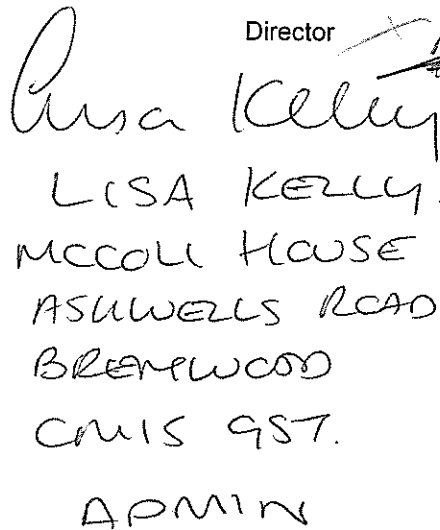 Director
Lisa Kelly
LISA KELLY.
MCCOLL HOUSE
ASHWELLS ROAD
BRENTWOOD
CM15 9ST.
ADMIN